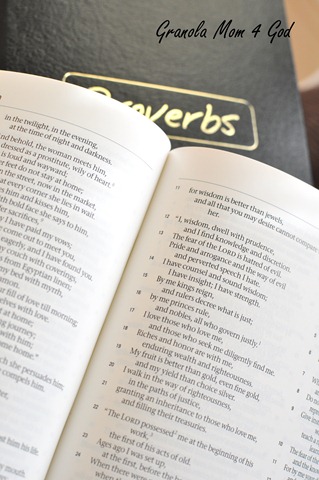 Granola Mom 4 God
Proverbs
in the twilight, in the evening,
at the time of night and darkness.
And behold, the woman meets him,
dressed as a prostitute, wily of heart.
is loud and wayward;
feet do not stay at home;
in the street, now in the market,
at every corner she lies in wait.
him and kisses him,
bold face she says to him,
sacrifices,
I have paid my vows;
come out to meet you,
eagerly, and I have found you.
couch with coverings,
from Egyptian linen;
my bed with myrrh,
fill of love till morning
with love.
at home;
journey;
him;
home."
she persuades him;
compels him.
his life.
my mouth
11 for wisdom is better than jewels,
and all that you may desire cannot compare
her.
12 "I, wisdom, dwell with prudence,
and I find knowledge and discretion.
13 The fear of the LORD is hatred of evil.
Pride and arrogance and the way of evil
and perverted speech I hate.
14 I have counsel and sound wisdom;
I have insight; I have strength.
15 By me kings reign,
and rulers decree what is just;
16 by me princes rule,
and nobles, all who govern justly.
17 I love those who love me,
and those who seek me diligently find me.
18 Riches and honor are with me,
enduring wealth and righteousness.
19 My fruit is better than gold, even fine gold,
and my yield than choice silver.
20 I walk in the way of righteousness,
in the paths of justice,
21 granting an inheritance to those who love me,
and filling their treasuries.
22 "The LORD possessed me at the beginning of his
work,
the first of his acts of old.
23 Ages ago I was set up,
at the first, before the
24 When there were